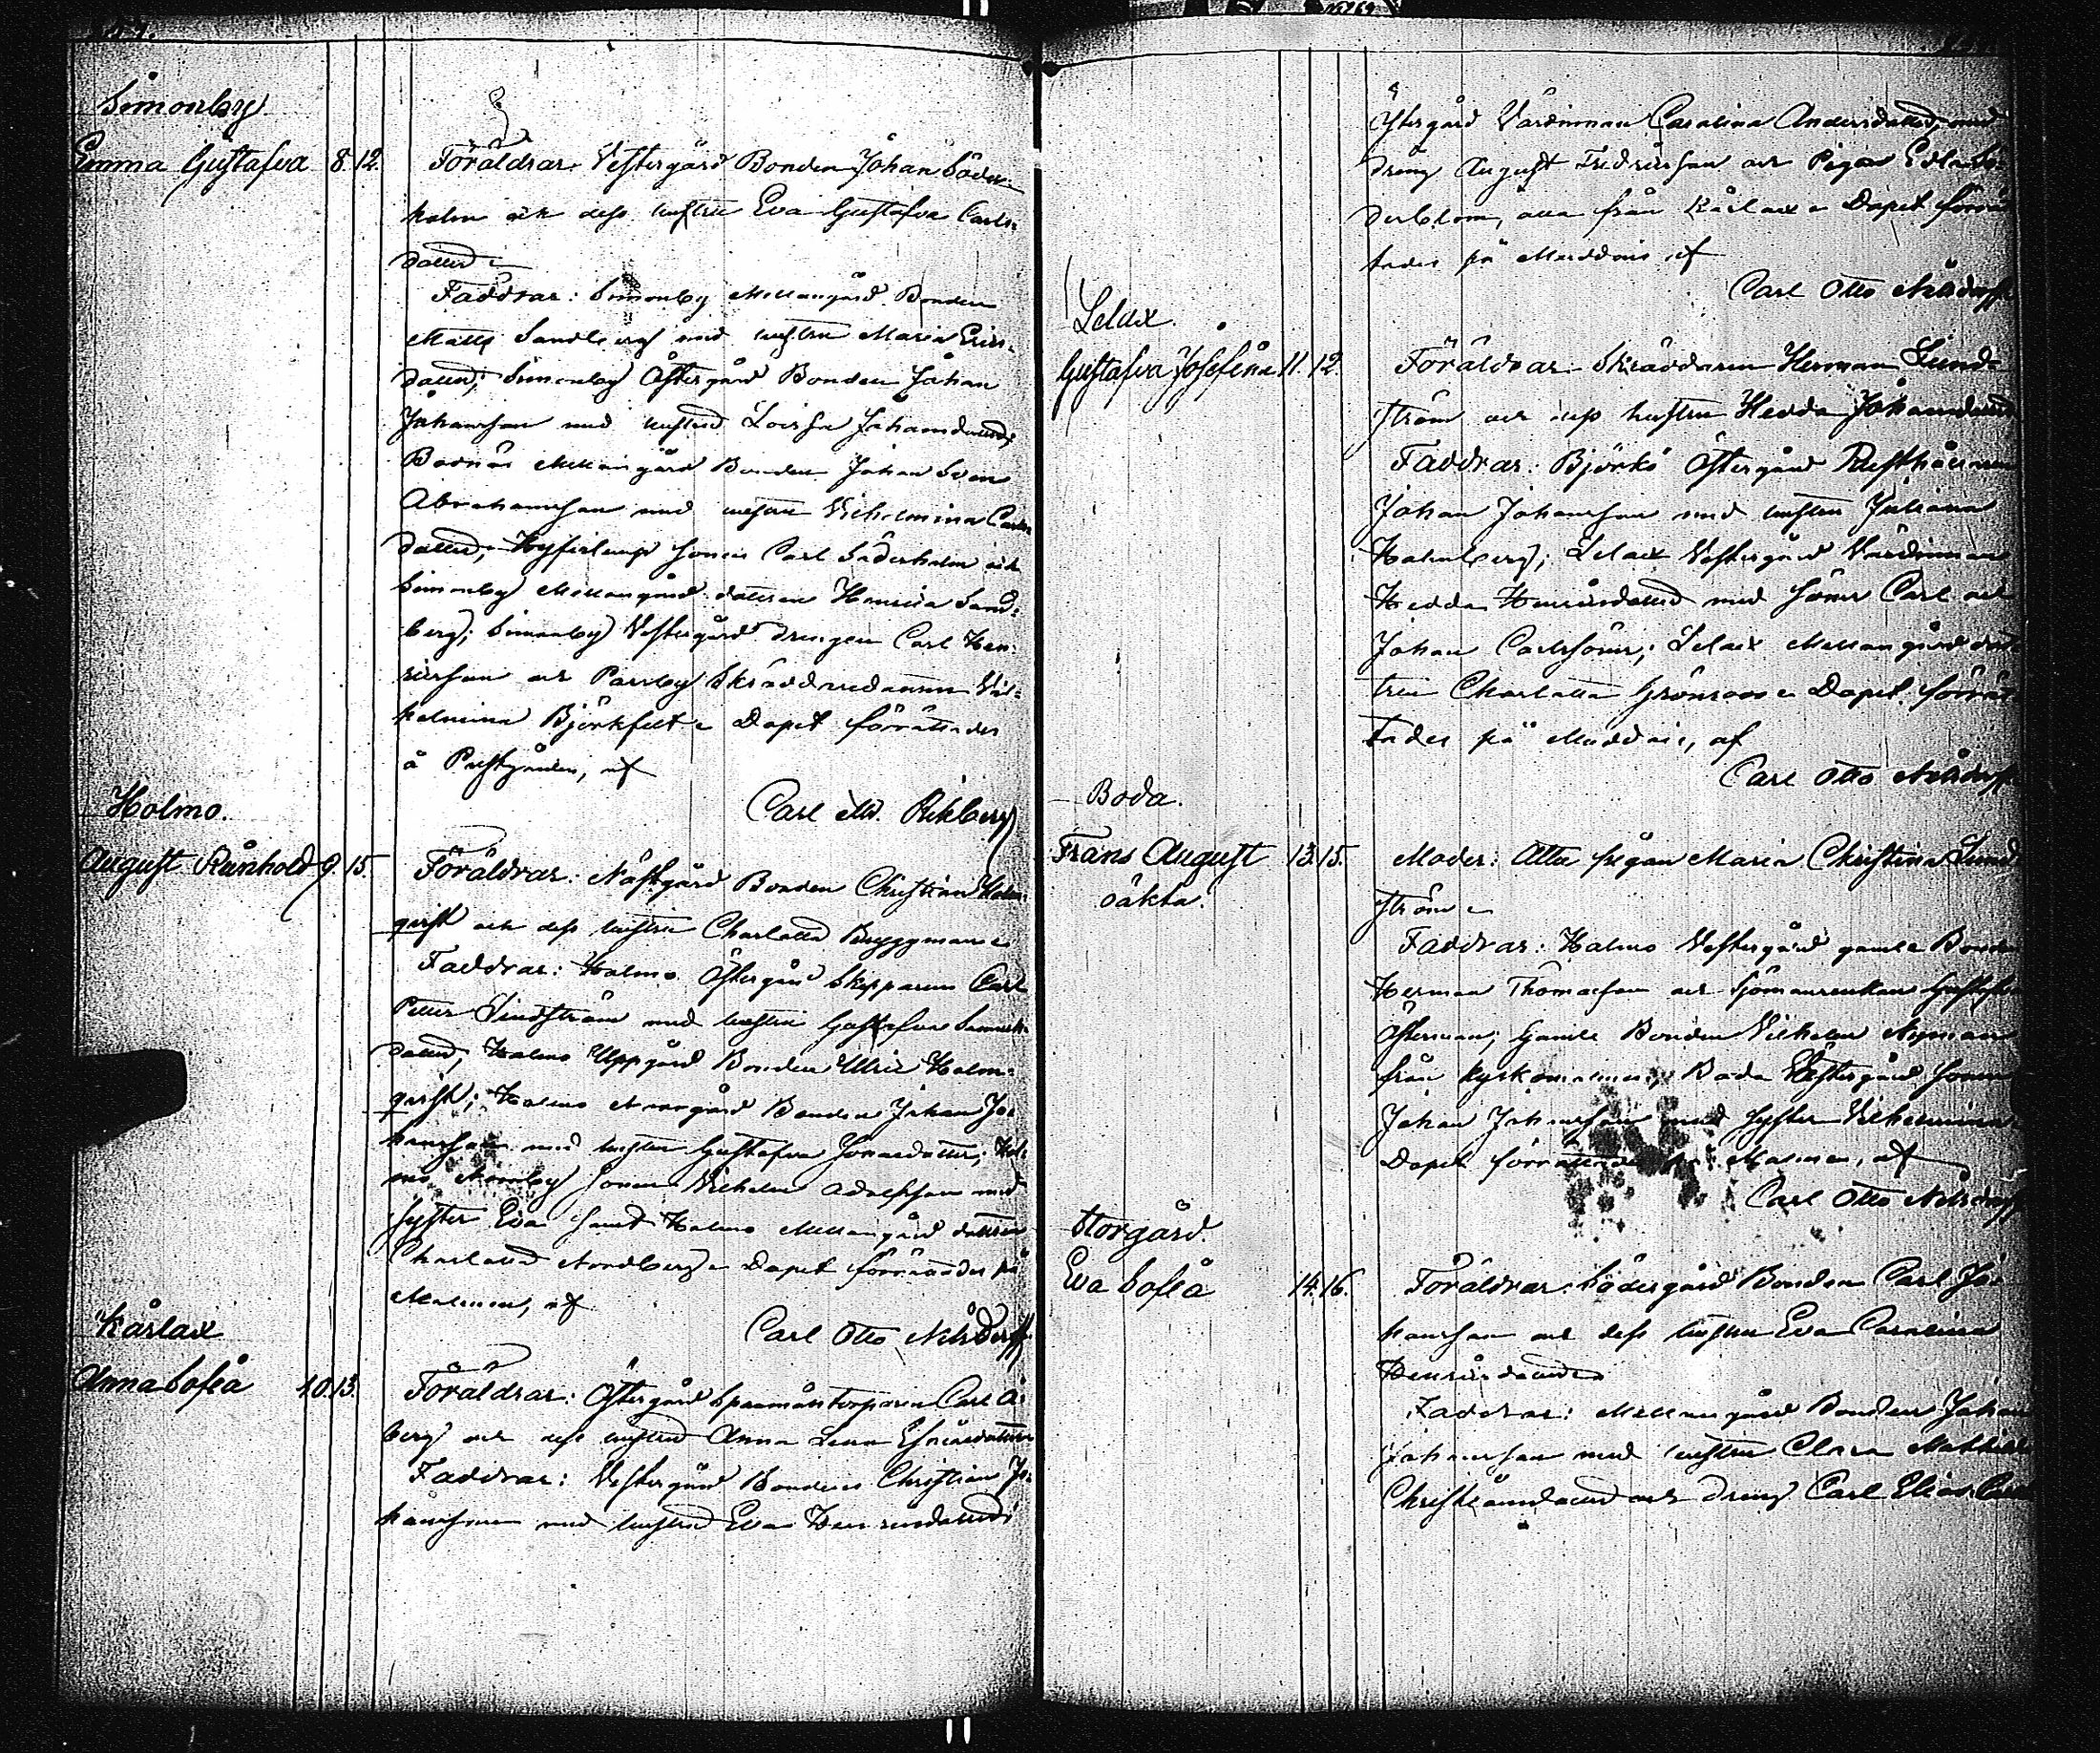 Simonby
Emma Gustafva 8. 12. Föräldrar: Vestergård Bonden Johan Söder-
holm och dess hustru Eva Gustafva Carls-
dotter
Faddrar: Simonby Mellangård Bonden
Matts Sandberg med hustru Maria Erics-
dotter; Simonby Östergård Bonden Johan
Johansson med hustru Lovisa Johansdotter;
Bodnäs Mellangård Bonden Johan
Abrahamsson med hustru Vilhelmina Carls-
dotter; sonen Carl Söderholm och
Simonby Mellangård dottren Henrica Sand-
berg; Simonby Vestergård drengen Carl Hen-
ricsson och Pärnby Skräddaredottren Vil-
helmina Björkfelt. Dopet förrättades
å Prestgården, af
Carl Rikberg
Holmo.
August Reinhold 9. 15. Föräldrar: Näsgård Bonden Christian Holm-
qvist och dess hustru Charlotta Bryggman
Faddrar: Holmo Östergård Skepparen Carl
Petter Lindström med hustru Gustafva Samuels-
dotter; Holmo Uppgård Bonden Ulric Holm-
qvist; Holmo Norrgård Bonden Johan Jo-
hansson med hustru Gustafva Jonasdotter; Hol-
mo sonen Vilhelm Adolfsson med
syster Eva samt Holmo Mellangård dottren
Charlotta Nordberg. Dopet förrättades på
Malmen, af
Carl Otto Nelsdorff
Kårlax
Anna Sofia 10. 13. Föräldrar: Östergård Spanmålstorparen Carl Å-
berg och dess hustru Anna Lena Esaiasdotter
Faddrar: Vestergård Bonden Christian Jo-
hansson med hustru Eva Henricsdotter;
Östergård Värdinnan Carolina Andersdotter, med
dreng August Fredricsson och Pigan Edla Sö-
derblom, alla från Kårlax. Dopet förrät-
tades på Muddais af
Carl Otto Nelsdorff
Lelax.
Gustafva Josefina 11. 12. Föräldrar: Skräddaren Herman Lund-
ström och dess hustru Hedda Johansdotter
Faddrar: Björkö Östergård Rusthållaren
Johan Johansson med hustru Juliana
Holmberg; Lelax Vestergård Värdinnan
Hedda Henricsdotter med söner Carl och
Johan Carlssöner; Lelax Mellangård dot-
tren Charlotta Grönroos. Dopet förrät-
tades på Muddais, af
Carl Otto Nelsdorff
Boda.
Frans August 13. 15. Moder: Atta pigan Maria Christina Lund-
oäkta. ström
Faddrar: Holmo Vestergård gamla Bonden
Herman Thomasson och Sjömansenkan Gustafva
Österman; gamle Bonden Vilhelm Nyman
från Kyrkomalmen; Boda Vestergård sonen
Johan Johansson med syster Vilhelmina
Dopet förrättades på Malmen, af
Carl Otto Nelsdorff
Storgård.
Eva Sofia 14. 16. Föräldrar: Södergård Bonden Carl Jo-
hansson och dess hustru Eva Carolina
Henricsdotter
Faddrar: Mellangård Bonden Johan
Johansson med hustru Clara Mathilda
Christiansdotter och dreng Carl Elias